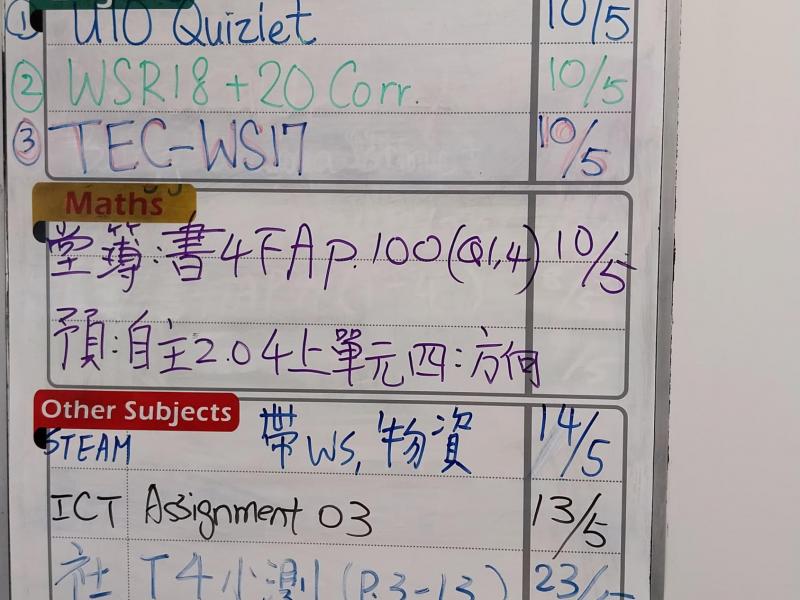 ① U10 Quizlet 10/5
② WSR18 + 20 Corr. 10/5
③ TEC-WS17 10/5
Maths
堂簿:書4下A p.100(Q1,4) 10/5
預:自主2.04上單元四:方向
Other Subjects
STEAM 帶WS, 物資 14/5
ICT Assignment 03 13/5
社 T4小測(P.3-13) 23/5